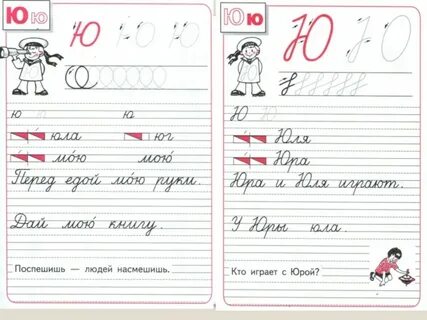 Ю ю
Ю Ю Ю
ю ю
юла юг
мо́ю мою́
Перед едой мо́ю руки.
Дай мою́ книгу.
Поспешишь — людей насмешишь.
Ю ю
Ю Ю
Ю Ю
Юля
Юра
Юра и Юля играют.
У Юры юла.
Кто играет с Юрой?